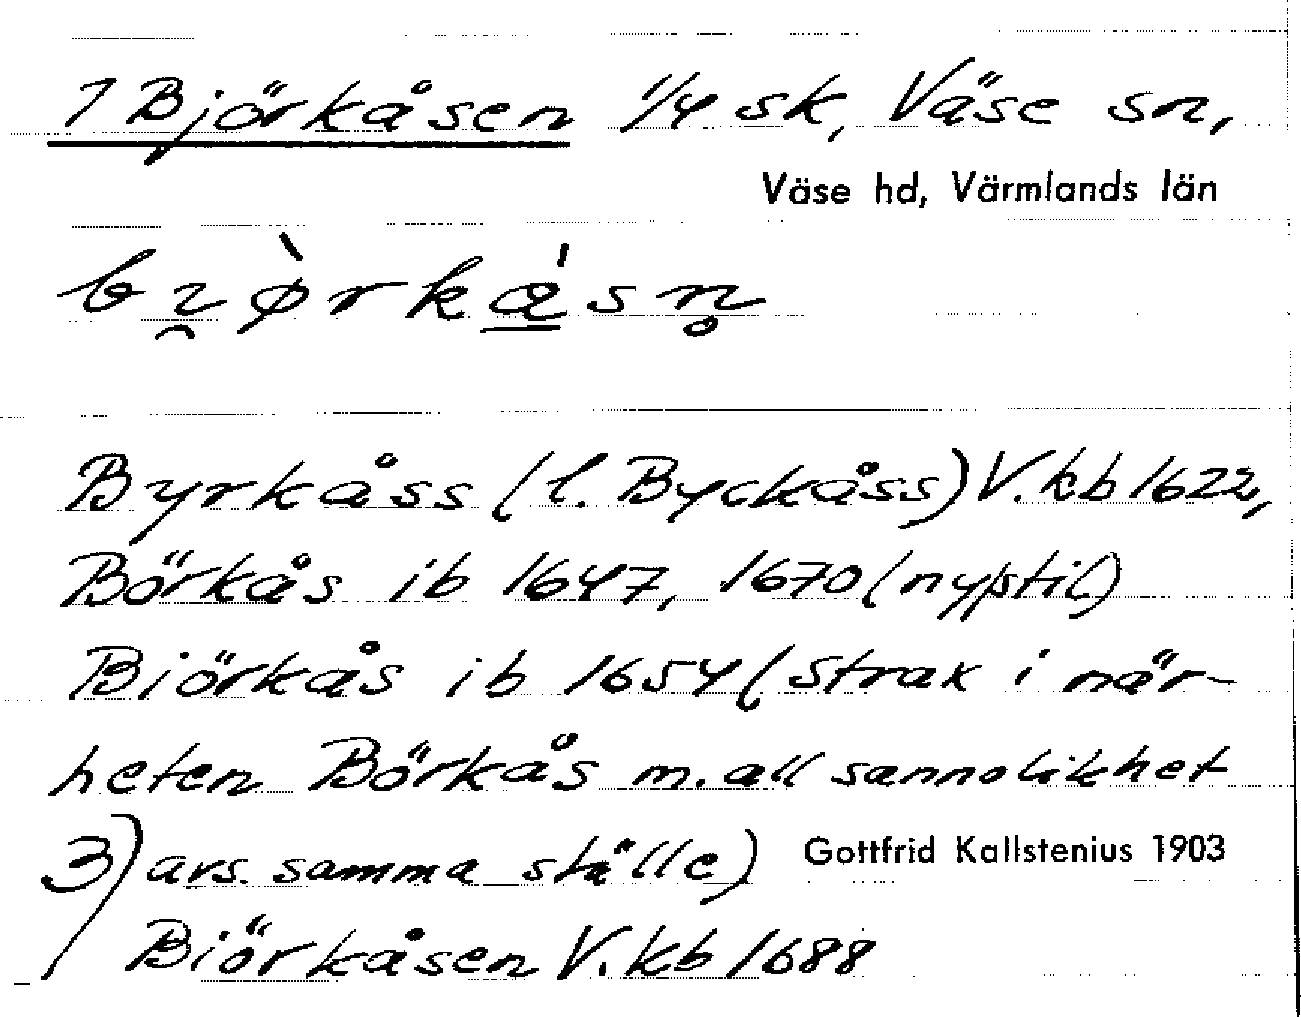 1 Björkåsen 1/4 sk, Väse sn,
Väse hd, Värmlands län
bı̯ø̀rkásn̥
Byrkåss (l. Byckåss) V.kb 1622,
Börkås ib 1647, 1670 (ny stil)
Biörkås ib 1654 (strax i när-
heten Börkås m. all sannolikhet
3) avs. samma ställe) Gottfrid Kallstenius 1903
Biörkåsen V.kb 1688